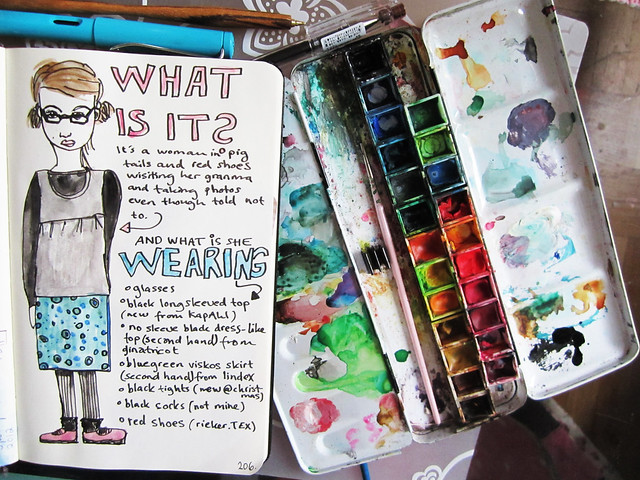 WHAT
IS IT?
It's a woman in pig
tails and red shoes
wisiting her granma
and taking photos
even though told not
to.
AND WHAT IS SHE
WEARING
glasses
black longsleeved top
(new from KapAhl)
no sleeve black dress-like
top (second hand) from
ginatricot
bluegreen viskos skirt
(second hand) from lindex
black tights (new @ christ
mas)
black socks (not mine)
red shoes (rieker.TEX)
206.